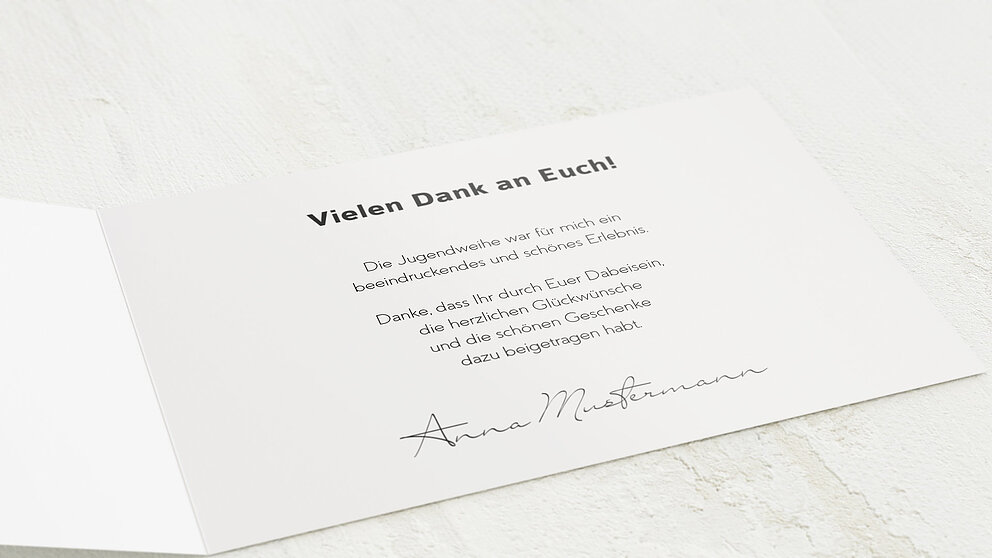 Vielen Dank an Euch!
Die Jugendweihe war für mich ein
beeindruckendes und schönes Erlebnis.
Danke, dass Ihr durch Euer Dabeisein,
die herzlichen Glückwünsche
und die schönen Geschenke
dazu beigetragen habt.
Anna Mustermann